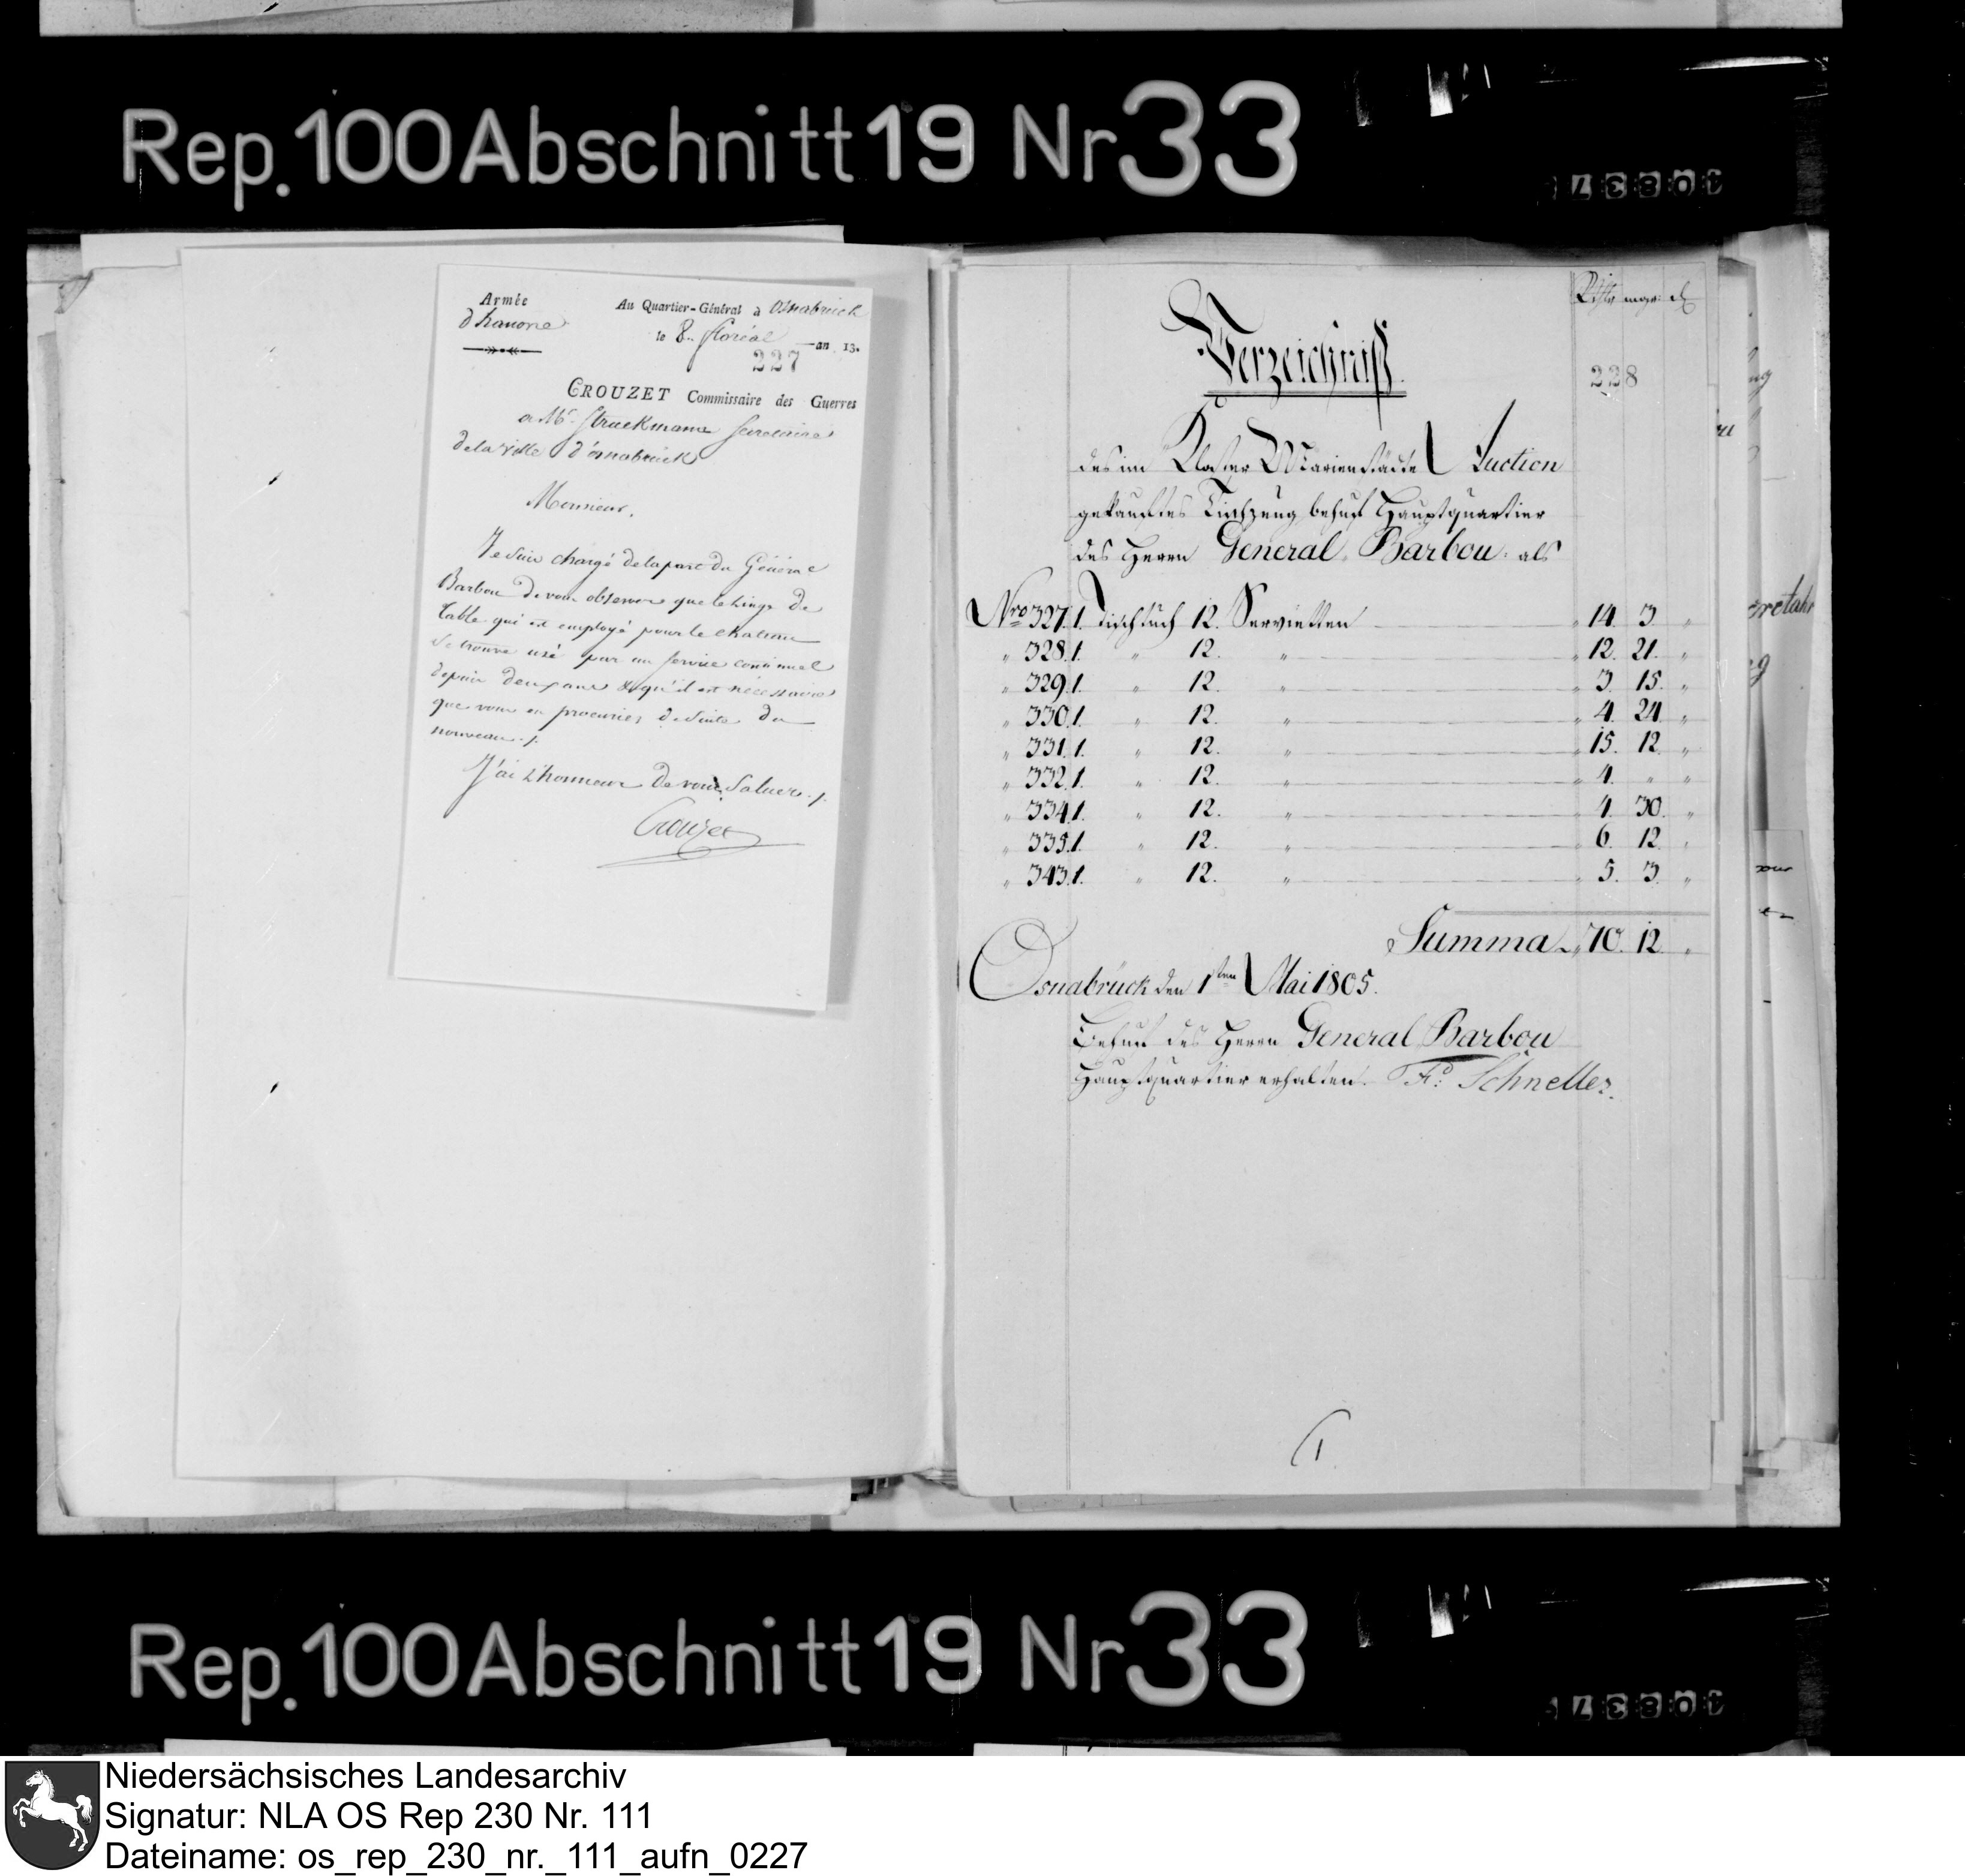 Rep. 100 Abschnitt 19 Nr 33
10837
Armée
d'hanovre
Au Quartier-Général à Osnabruck
le 8. floréal an 13.
227
CROUZET Commissaire des Guerres
a Mr. Struckmann Secretaire
de la ville d'osnabruck
Monsieur,
Je suis chargé de la part du Général
Barbou de vous observer que le linge de
table qui est employé pour le chateau
se trouve usé par un service continuel
depuis deux ans & qu'il est nécessaire
que vous en procuriez de suite du
nouveau ./.
J'ai L'honneur de vous Saluer ./.
Crouzet
Rthlr mgr d
Verzeichniß
228
des im Kloster Marienstädte Auction
gekauftes Tischzeug behuf Hauptquartier
des Herrn General Barbou: als
Nro 327. 1. Tischtuch 12. Servietten 14. 3. "
" 328. 1. " 12. " " 12. 21. "
" 329. 1. " 12. " " 3. 15. "
" 330. 1. " 12. " " 4. 24. "
" 331. 1. " 12. " " 15. 12. "
" 332. 1. " 12. " " 4. " "
" 334. 1. " 12. " " 4. 30. "
" 335. 1. " 12. " " 6. 12. "
" 343. 1. " 12. " " 5. 3. "
Summa " 70. 12. "
Osnabrück den 1ten Mai 1805.
Behuf des Herrn General Barbou
Hauptquartier erhalten. Fd: Schneller.
Rep. 100 Abschnitt 19 Nr 33
10837
Niedersächsisches Landesarchiv
Signatur: NLA OS Rep 230 Nr. 111
Dateiname: os_rep_230_nr._111_aufn_0227